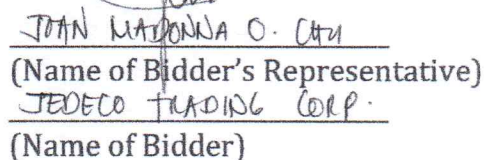 JOAN MADONNA O. CHU
(Name of Bidder's Representative)
JEDECO TRADING CORP.
(Name of Bidder)